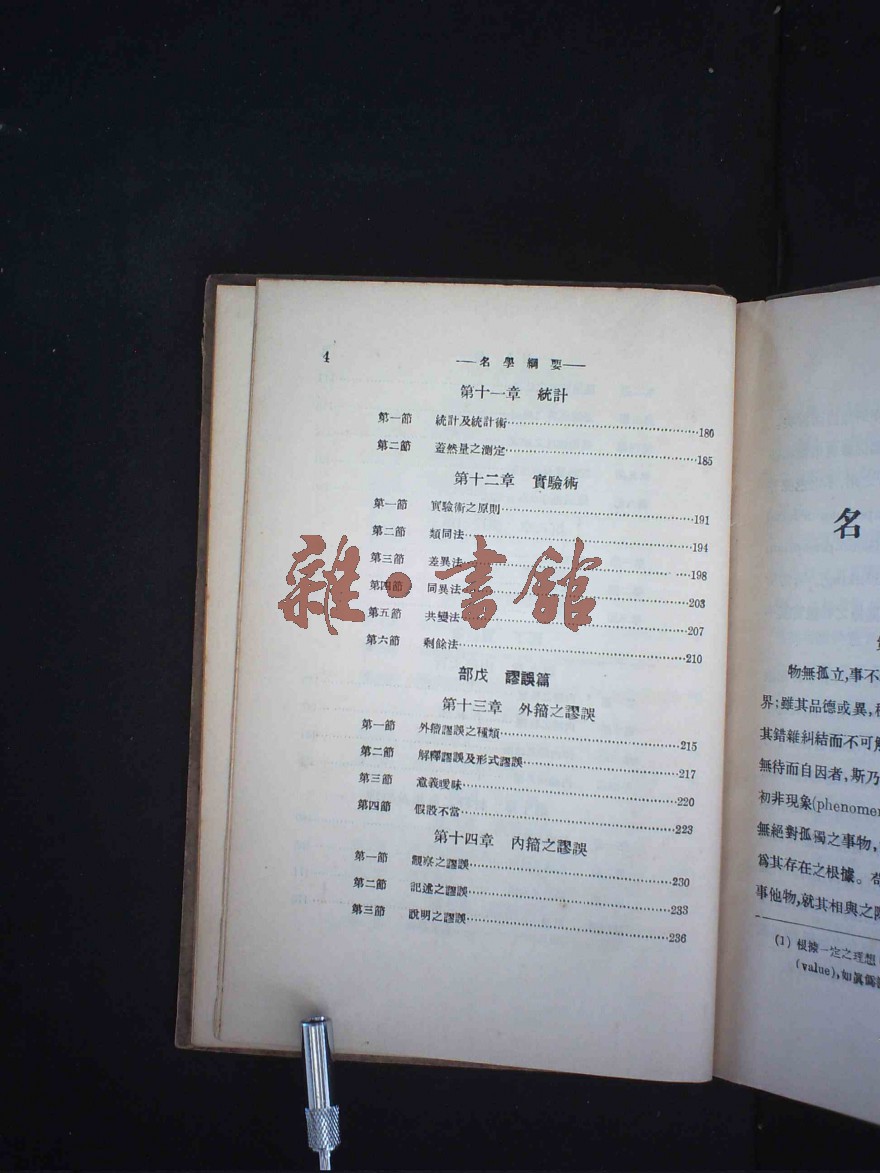 4
——名學綱要——
第十一章 統計
第一節 統計及統計術……180
第二節 蓋然量之測定……185
第十二章 實驗術
第一節 實驗術之原則……191
第二節 類同法……194
第三節 差異法……198
第四節 同異法……203
第五節 共變法……207
第六節 剩餘法……210
部戊 謬誤篇
第十三章 外籀之謬誤
第一節 外籀謬誤之種類……215
第二節 解釋謬誤及形式謬誤……217
第三節 意義曖昧……220
第四節 假設不當……223
第十四章 內籀之謬誤
第一節 觀察之謬誤……230
第二節 記述之謬誤……233
第三節 說明之謬誤……236
雜·書館
名
物無孤立,事不
界;雖其品德或異,
其錯雜糾結而不可
無待而自因者,斯乃
初非現象(phenomen
無絕對孤獨之事物,
爲其存在之根據。
事他物,就其相與之
(1) 根據一定之理想
(value),如眞僞